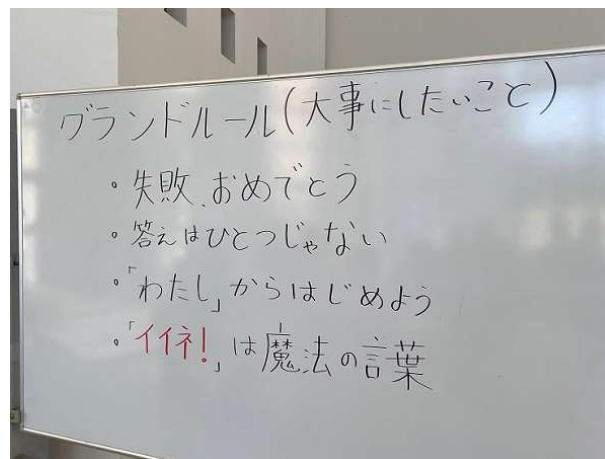 グランドルール(大事にしたいこと)
◦失敗、おめでとう
◦答えはひとつじゃない
◦「わたし」からはじめよう
◦「イイネ!」は魔法の言葉